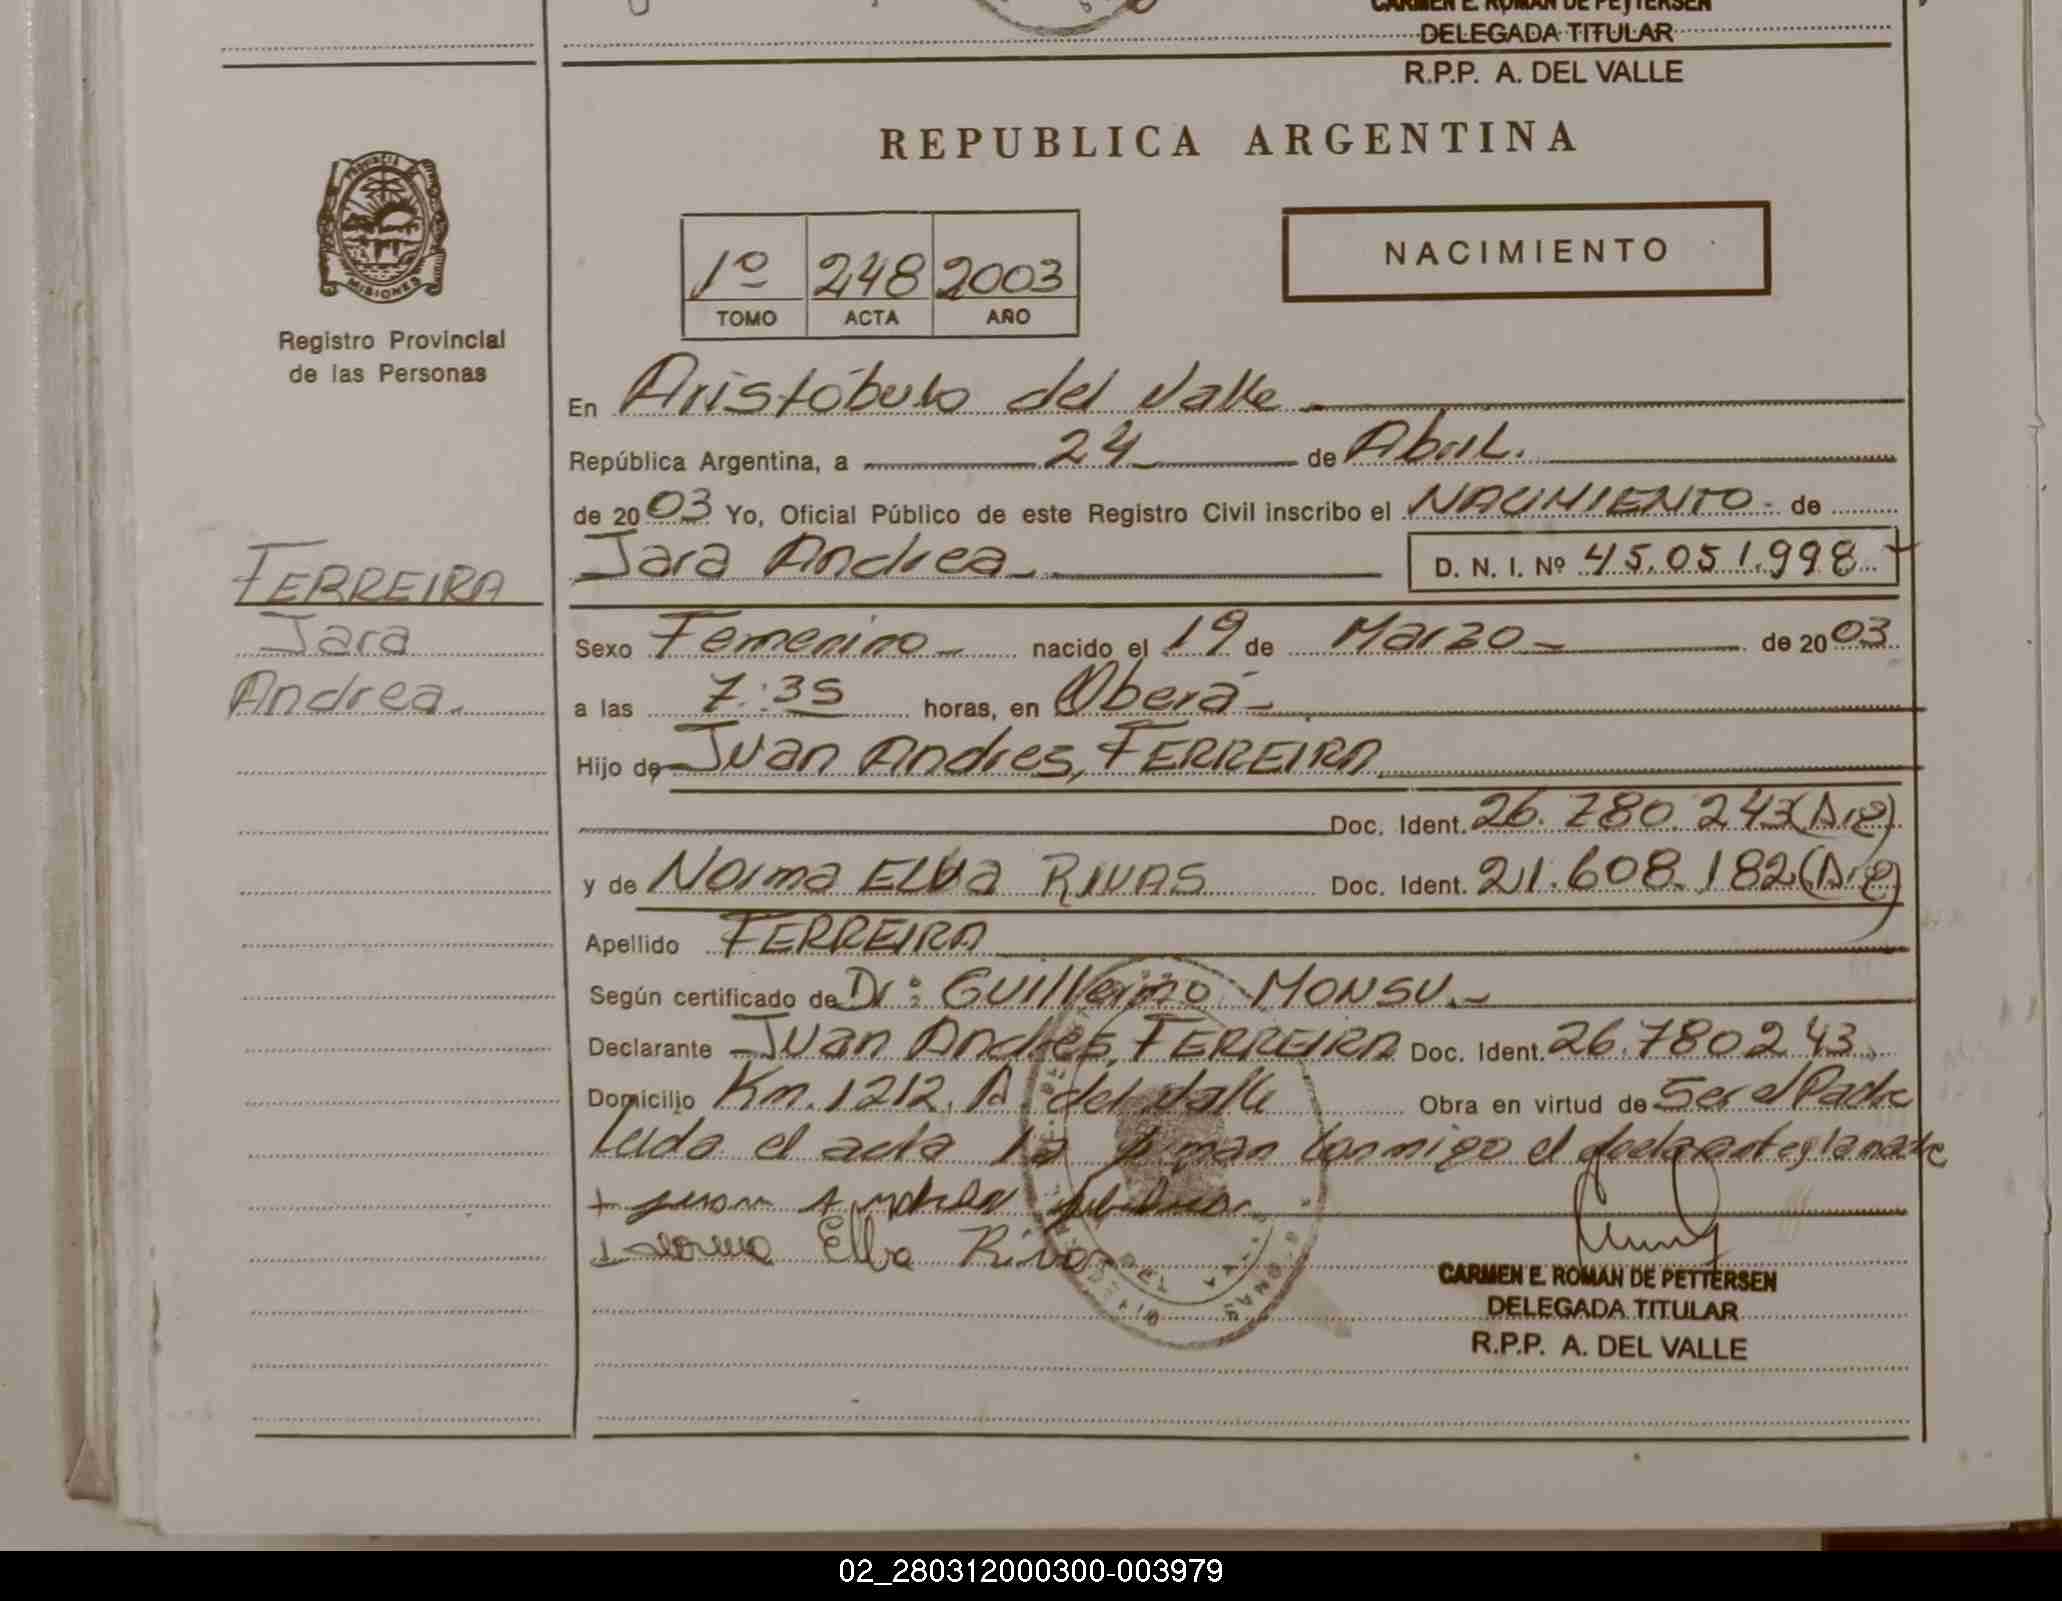 CARMEN E. ROMAN DE PETTERSEN
DELEGADA TITULAR
R.P.P. A. DEL VALLE
REPUBLICA ARGENTINA
PROVINCIA DE
MISIONES
Registro Provincial
de las Personas
1º 248 2003
TOMO ACTA AÑO
NACIMIENTO
En Aristóbulo del Valle
República Argentina, a 24 de Abril.
de 2003 Yo, Oficial Público de este Registro Civil inscribo el NACIMIENTO de
Jara Andrea D. N. I. Nº 45.051.998
FERREIRA
Jara
Andrea.
Sexo Femenino nacido el 19 de Marzo de 2003
a las 7:35 horas, en Oberá
Hijo de Juan Andres, FERREIRA
Doc. Ident. 26.780.243 (Arg)
y de Norma ELba RIVAS Doc. Ident. 21.608.182 (Arg)
Apellido FERREIRA
Según certificado de Dr: GUIllermo MONSU.
Declarante Juan Andres, FERREIRA Doc. Ident. 26.780243
Domicilio Km. 1212. A. del Valle Obra en virtud de Ser el Padre
Leida el acta la firman conmigo el declarante y la madre
Norma Elba Rivas
CARMEN E. ROMAN DE PETTERSEN
DELEGADA TITULAR
R.P.P. A. DEL VALLE
02_280312000300-003979